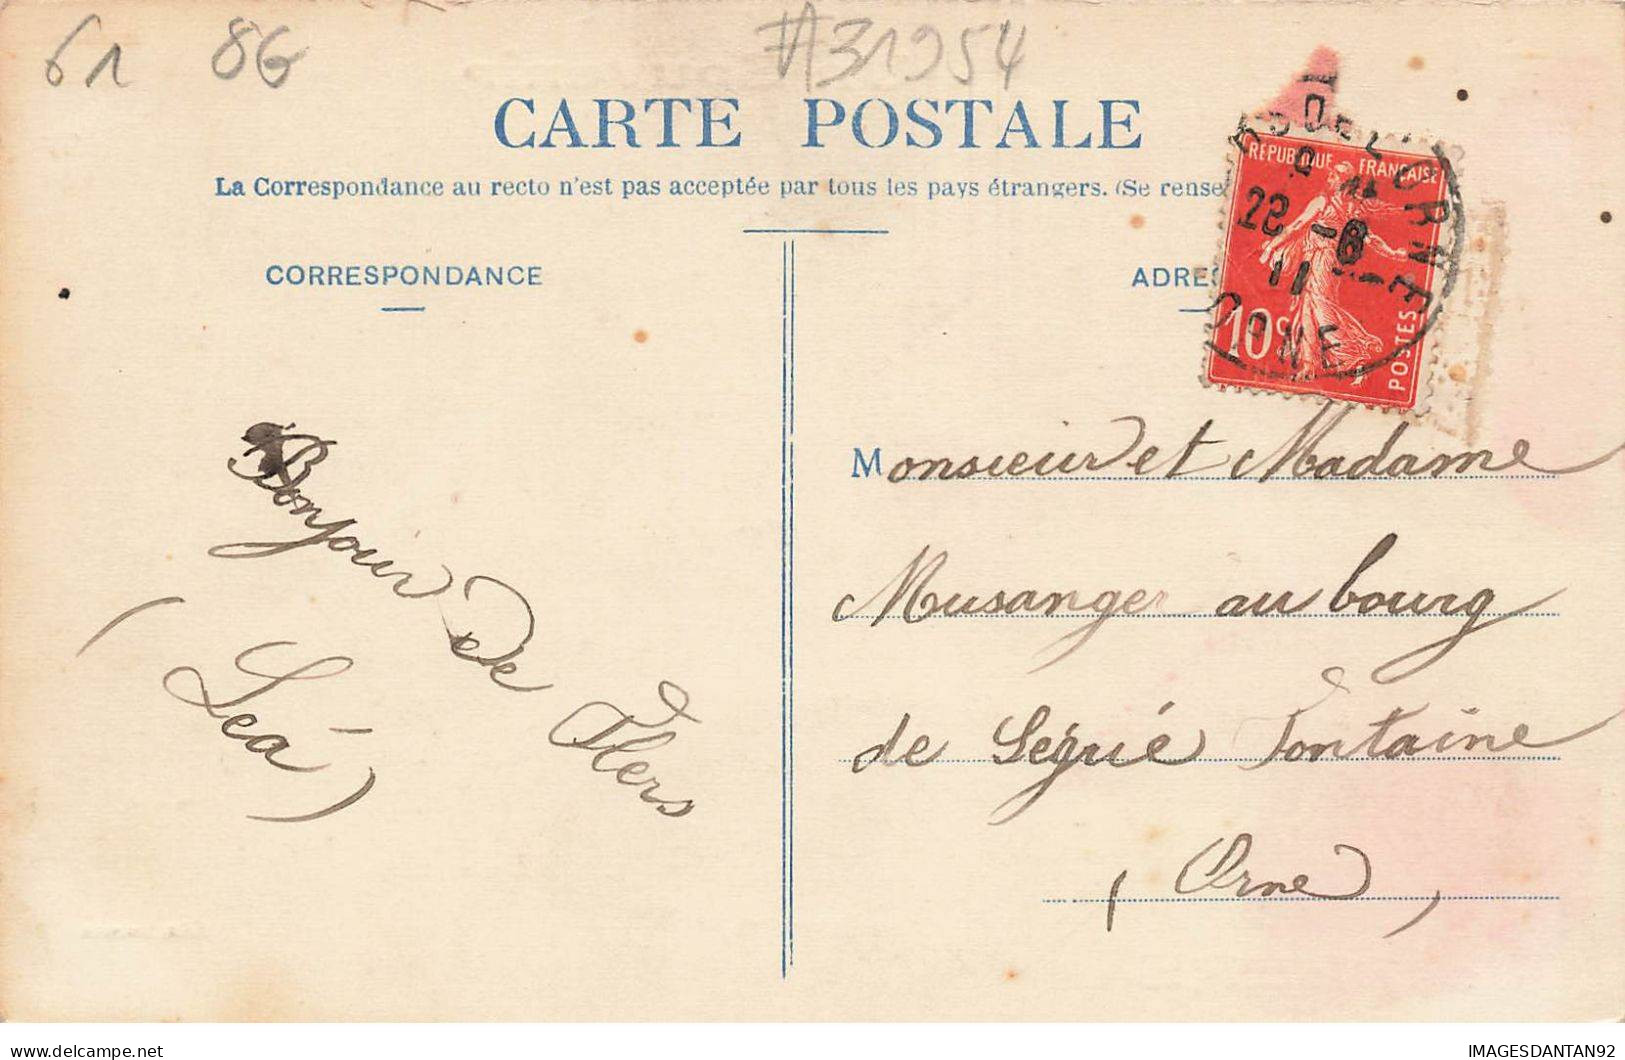 61 8G #31954
CARTE POSTALE
La Correspondance au recto n'est pas acceptée par tous les pays étrangers. (Se rense
CORRESPONDANCE
ADRE
RÉPUBLIQUE FRANÇAISE
10c
POSTES
28 - 6
11
ORNE
ORNE
Bonjour
De Flers
(Léa)
Monsieur et Madame
Musanger au bourg
de Ségrié Fontaine
(Orne)
IMAGESDANTAN92